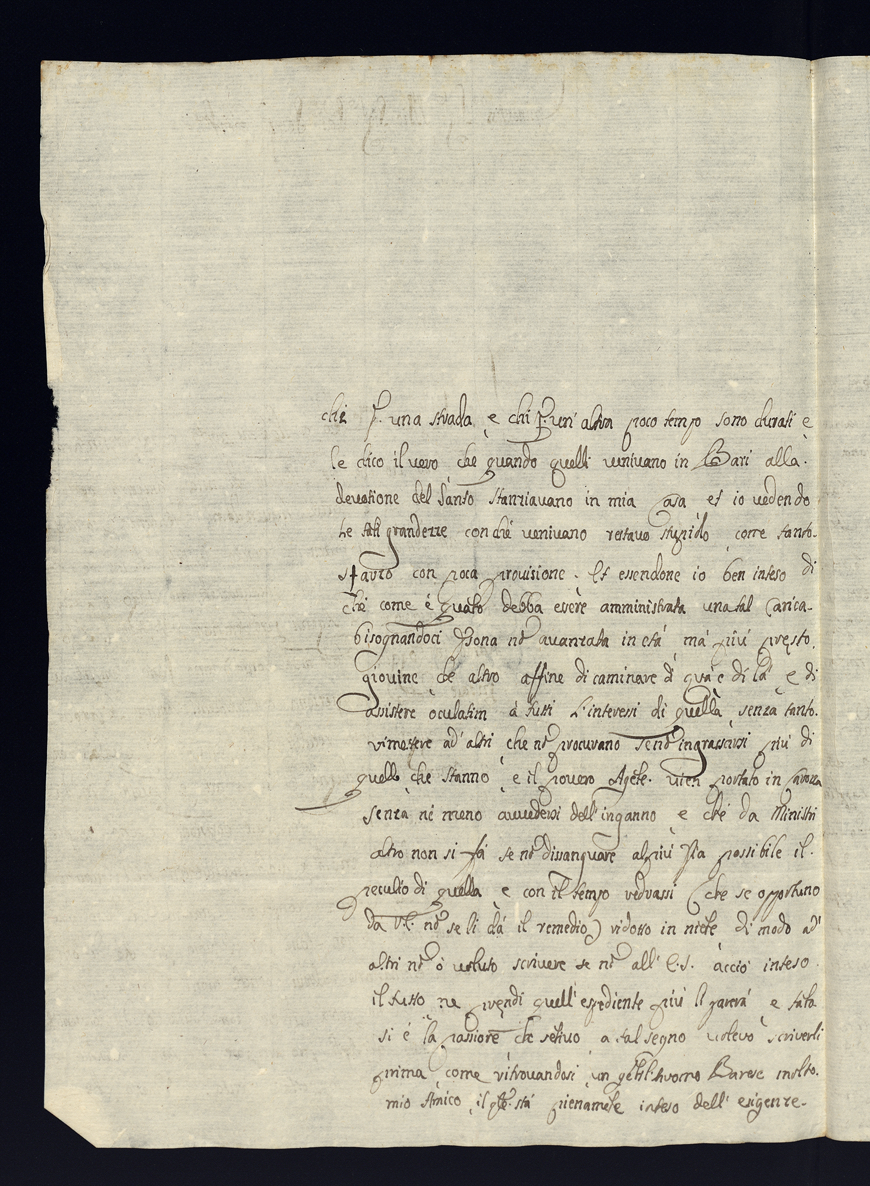 chi p. una strada, e chi p. un' altra poco tempo sono durati e
le dico il vero che quando quelli venivano in Bari alla
devotione del Santo stanziavano in mia Casa et io vedendo
le grandezze con che venivano restavo stupido come tanto
sfarzo con poca provisione. Et essendone io ben inteso di
che come è quato debba essere amministrata una tal Carica
bisognandoci Psona nō avanzata in età, mà più presto
giovine che altro affine di caminare di quà e di là e di
assistere oculatim à tutti l'interessi di quella senza tanto
rimettere ad' altri che nō procurano se nō ingrassarsi più di
quello che stanno, e il povero Agēte vien portato in Carozza
senza nè meno avvedersi dell'inganno e che da Ministri
altro non si fà se nō dissanguare al più sia possibile il
peculio di quella e con il tempo vedrassi (che se opportuno
da V.E. nō se li dà il remedio) ridosso in niēte di modo ad'
altri nō ò voluto scrivere se nō all' E.S. acciò inteso
il tutto ne prendi quell'espediente più li parerà, e tāta
si è la passione che sētivo a tal segno volevo scriverli
prima, come ritrovandosi un gētil'huomo Barese molto
mio Amico, il qle stà pienamēte inteso dell' esigenze